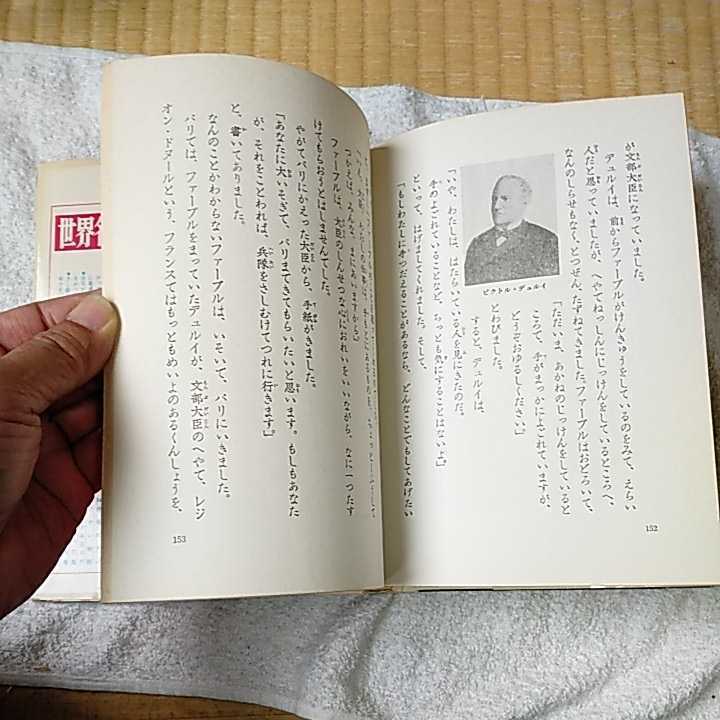 が文部大臣になっていました。
デュルイは、前からファーブルがけんきゅうをしているのをみて、えらい
人だと思っていましたが、へやでねっしんにじっけんをしているところへ、
なんのしらせもなく、とつぜん、たずねてきました。ファーブルはおどろいて、
「ただいま、あかねのじっけんをしていると
ころで、手がまっかによごれていますが、
どうぞおゆるしください」
とわびました。
すると、デュルイは、
ビクトル・デュルイ
「いや、わたしは、はたらいている人を見にきたのだ。
手のよごれていることなど、ちっとも気にすることはないよ」
といって、はげましてくれました。そして、
「もしわたしに手つだえることがあるなら、どんなことでもしてあげたい
152
ファーブルは、大臣のしんせつな心におれいをいいながら、なに一つたす
けてもらおうとはしませんでした。
やがてパリにかえった大臣から、手紙がきました。
「あなたに大いそぎで、パリまできてもらいたいと思います。もしもあなた
が、それをことわれば、兵隊をさしむけてつれに行きます」
と、書いてありました。
なんのことかわからないファーブルは、いそいで、パリにいきました。
パリでは、ファーブルをまっていたデュルイが、文部大臣のへやで、レジ
オン・ドヌールという、フランスではもっともめいよのあるくんしょうを、
153
世界